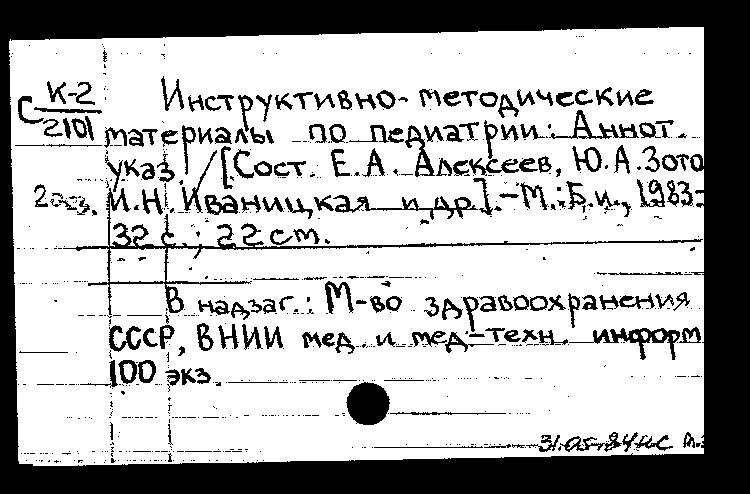 С К-2
2101
Инструктивно-методические
материалы по педиатрии: Аннот.
указ. / [Сост. Е.А. Алексеев, Ю.А.Зото
2 экз. И.Н. Иваницкая и др.].-М.:Б.и., 1983-
32 с.; 22 см.
В надзаг.: М-во здравоохранения
СССР, ВНИИ мед. и мед-техн. информ
100 экз.
31.05.84